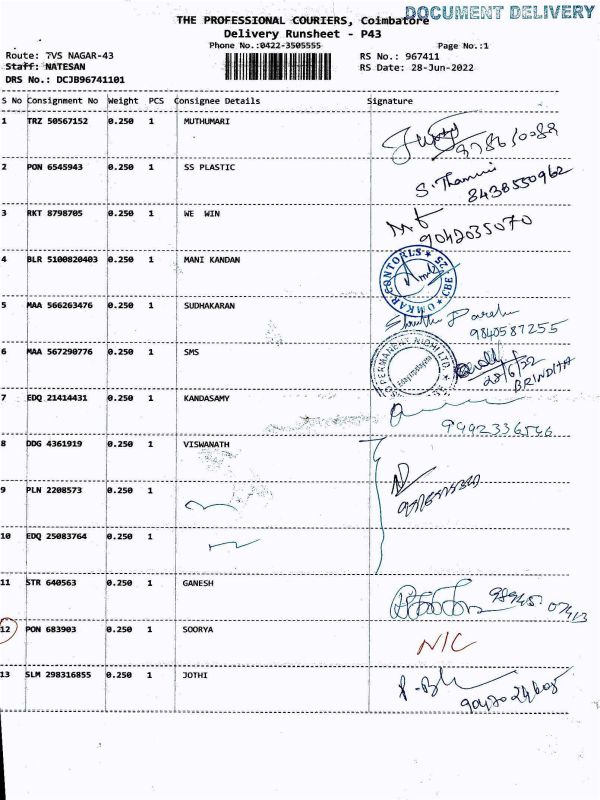 DOCUMENT DELIVERY
THE PROFESSIONAL COURIERS, Coimbatore
Delivery Runsheet - P43
Phone No.:0422-3505555
Page No.:1
Route: TVS NAGAR-43
RS No.: 967411
Staff: NATESAN
RS Date: 28-Jun-2022
DRS No.: DCJB96741101
S No Consignment No Weight PCS Consignee Details Signature
1 TRZ 50567152 0.250 1 MUTHUMARI
2 PON 6545943 0.250 1 SS PLASTIC
8438550962
3 RKT 8798705 0.250 1 WE WIN
9042035070
4 BLR 5100820403 0.250 1 MANI KANDAN
OMKAR CONTORLS CBE
5 MAA 566263476 0.250 1 SUDHAKARAN
9840587255
6 MAA 567290776 0.250 1 SMS
PERMANENT NIDHI LTD.
BRINDHA
7 EDQ 21414431 0.250 1 KANDASAMY
9992336546
8 DDG 4361919 0.250 1 VISWANATH
9 PLN 2208573 0.250 1
10 EDQ 25083764 0.250 1
11 STR 640563 0.250 1 GANESH
12 PON 683903 0.250 1 SOORYA
N/C
13 SLM 298316855 0.250 1 JOTHI